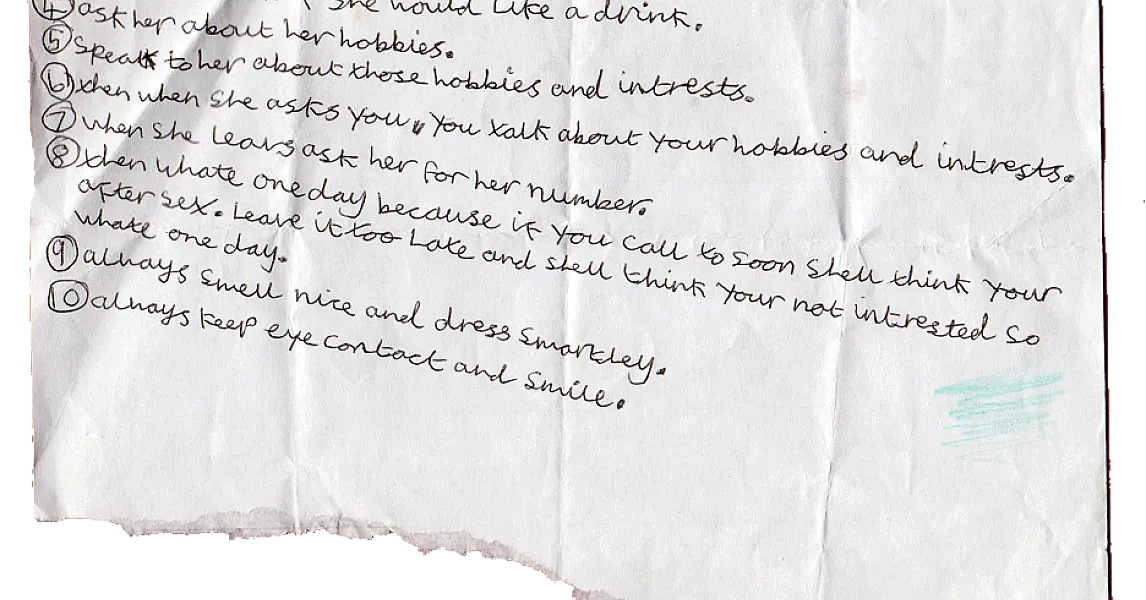 she would like a drink.
④ ask her about her hobbies.
⑤ speak to her about those hobbies and intrests.
⑥ then when she asks you, you talk about your hobbies and intrests.
⑦ when she leavs ask her for her number.
⑧ then whate one day because if you call to soon shell think your
after sex. Leave it too late and shell think your not intrested so
whate one day.
⑨ always smell nice and dress smartley.
⑩ always keep eye contact and smile.